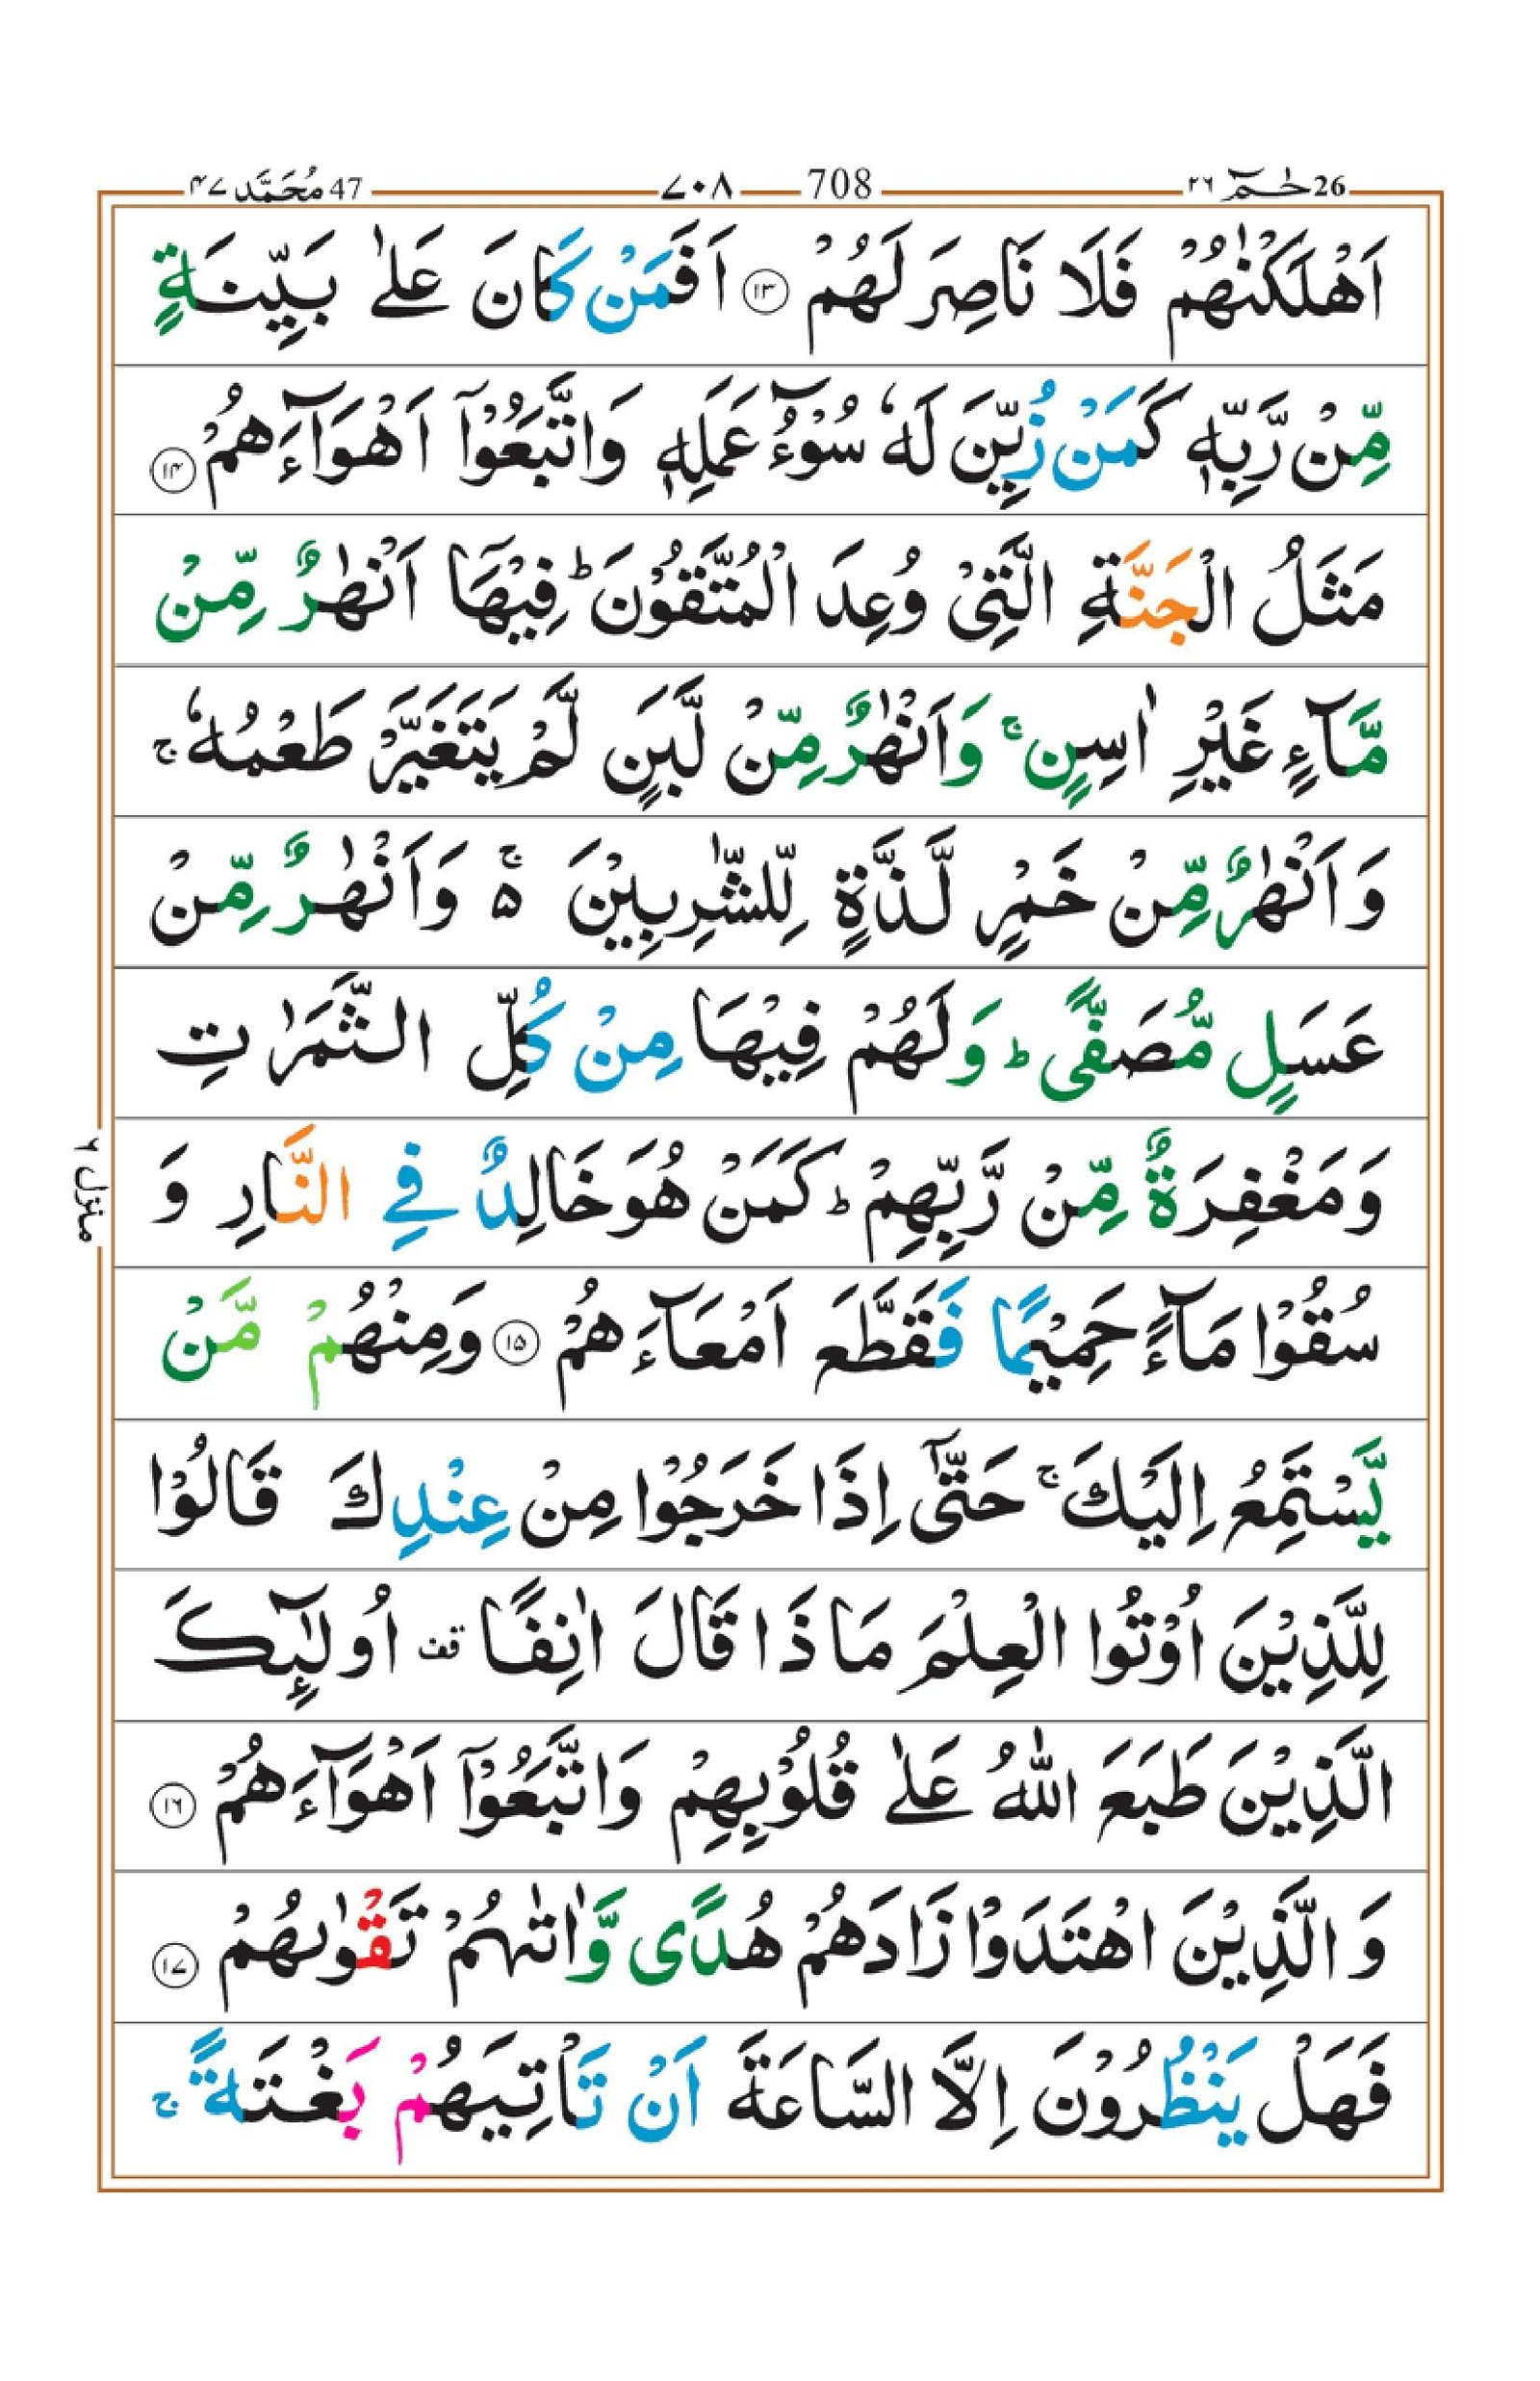 26 حٰمٓ ٢٦
708 ٧٠٨
47 مُحَمَّد ٤٧
اَهْلَكْنٰهُمْ فَلَا نَاصِرَ لَهُمْ ۝١٣ اَفَمَنْ كَانَ عَلٰى بَيِّنَةٍ
مِّنْ رَّبِّهٖ كَمَنْ زُيِّنَ لَهٗ سُوْٓءُ عَمَلِهٖ وَاتَّبَعُوْٓا اَهْوَآءَهُمْ ۝١٤
مَثَلُ الْجَنَّةِ الَّتِيْ وُعِدَ الْمُتَّقُوْنَ ؕ فِيْهَاۤ اَنْهٰرٌ مِّنْ
مَّآءٍ غَيْرِ اٰسِنٍ ۚ وَاَنْهٰرٌ مِّنْ لَّبَنٍ لَّمْ يَتَغَيَّرْ طَعْمُهٗ ۚ
وَاَنْهٰرٌ مِّنْ خَمْرٍ لَّذَّةٍ لِّلشّٰرِبِيْنَ ۵ۚ وَاَنْهٰرٌ مِّنْ
عَسَلٍ مُّصَفًّى ؕ وَلَهُمْ فِيْهَا مِنْ كُلِّ الثَّمَرٰتِ
وَمَغْفِرَةٌ مِّنْ رَّبِّهِمْ ؕ كَمَنْ هُوَ خَالِدٌ فِي النَّارِ وَ
سُقُوْا مَآءً حَمِيْمًا فَقَطَّعَ اَمْعَآءَهُمْ ۝١٥ وَمِنْهُمْ مَّنْ
يَّسْتَمِعُ اِلَيْكَ ۚ حَتّٰٓى اِذَا خَرَجُوْا مِنْ عِنْدِكَ قَالُوْا
لِلَّذِيْنَ اُوْتُوا الْعِلْمَ مَاذَا قَالَ اٰنِفًا قف اُولٰٓئِكَ
الَّذِيْنَ طَبَعَ اللّٰهُ عَلٰى قُلُوْبِهِمْ وَاتَّبَعُوْٓا اَهْوَآءَهُمْ ۝١٦
وَالَّذِيْنَ اهْتَدَوْا زَادَهُمْ هُدًى وَّاٰتٰىهُمْ تَقْوٰىهُمْ ۝١٧
فَهَلْ يَنْظُرُوْنَ اِلَّا السَّاعَةَ اَنْ تَاْتِيَهُمْ بَغْتَةً ۚ
منزل ٦